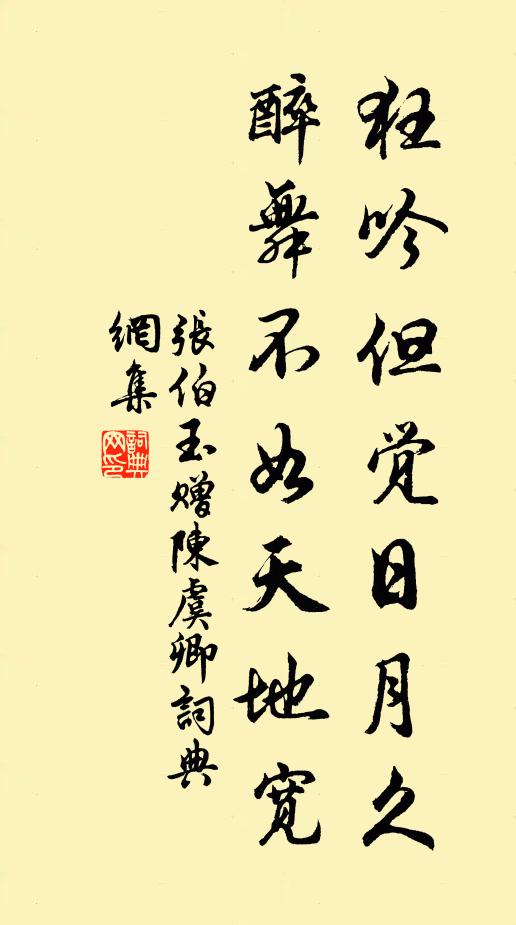 狂吟但觉日月久
醉舞不如天地寬
張伯玉贈陳虞卿詞典
網集
詞典
网印